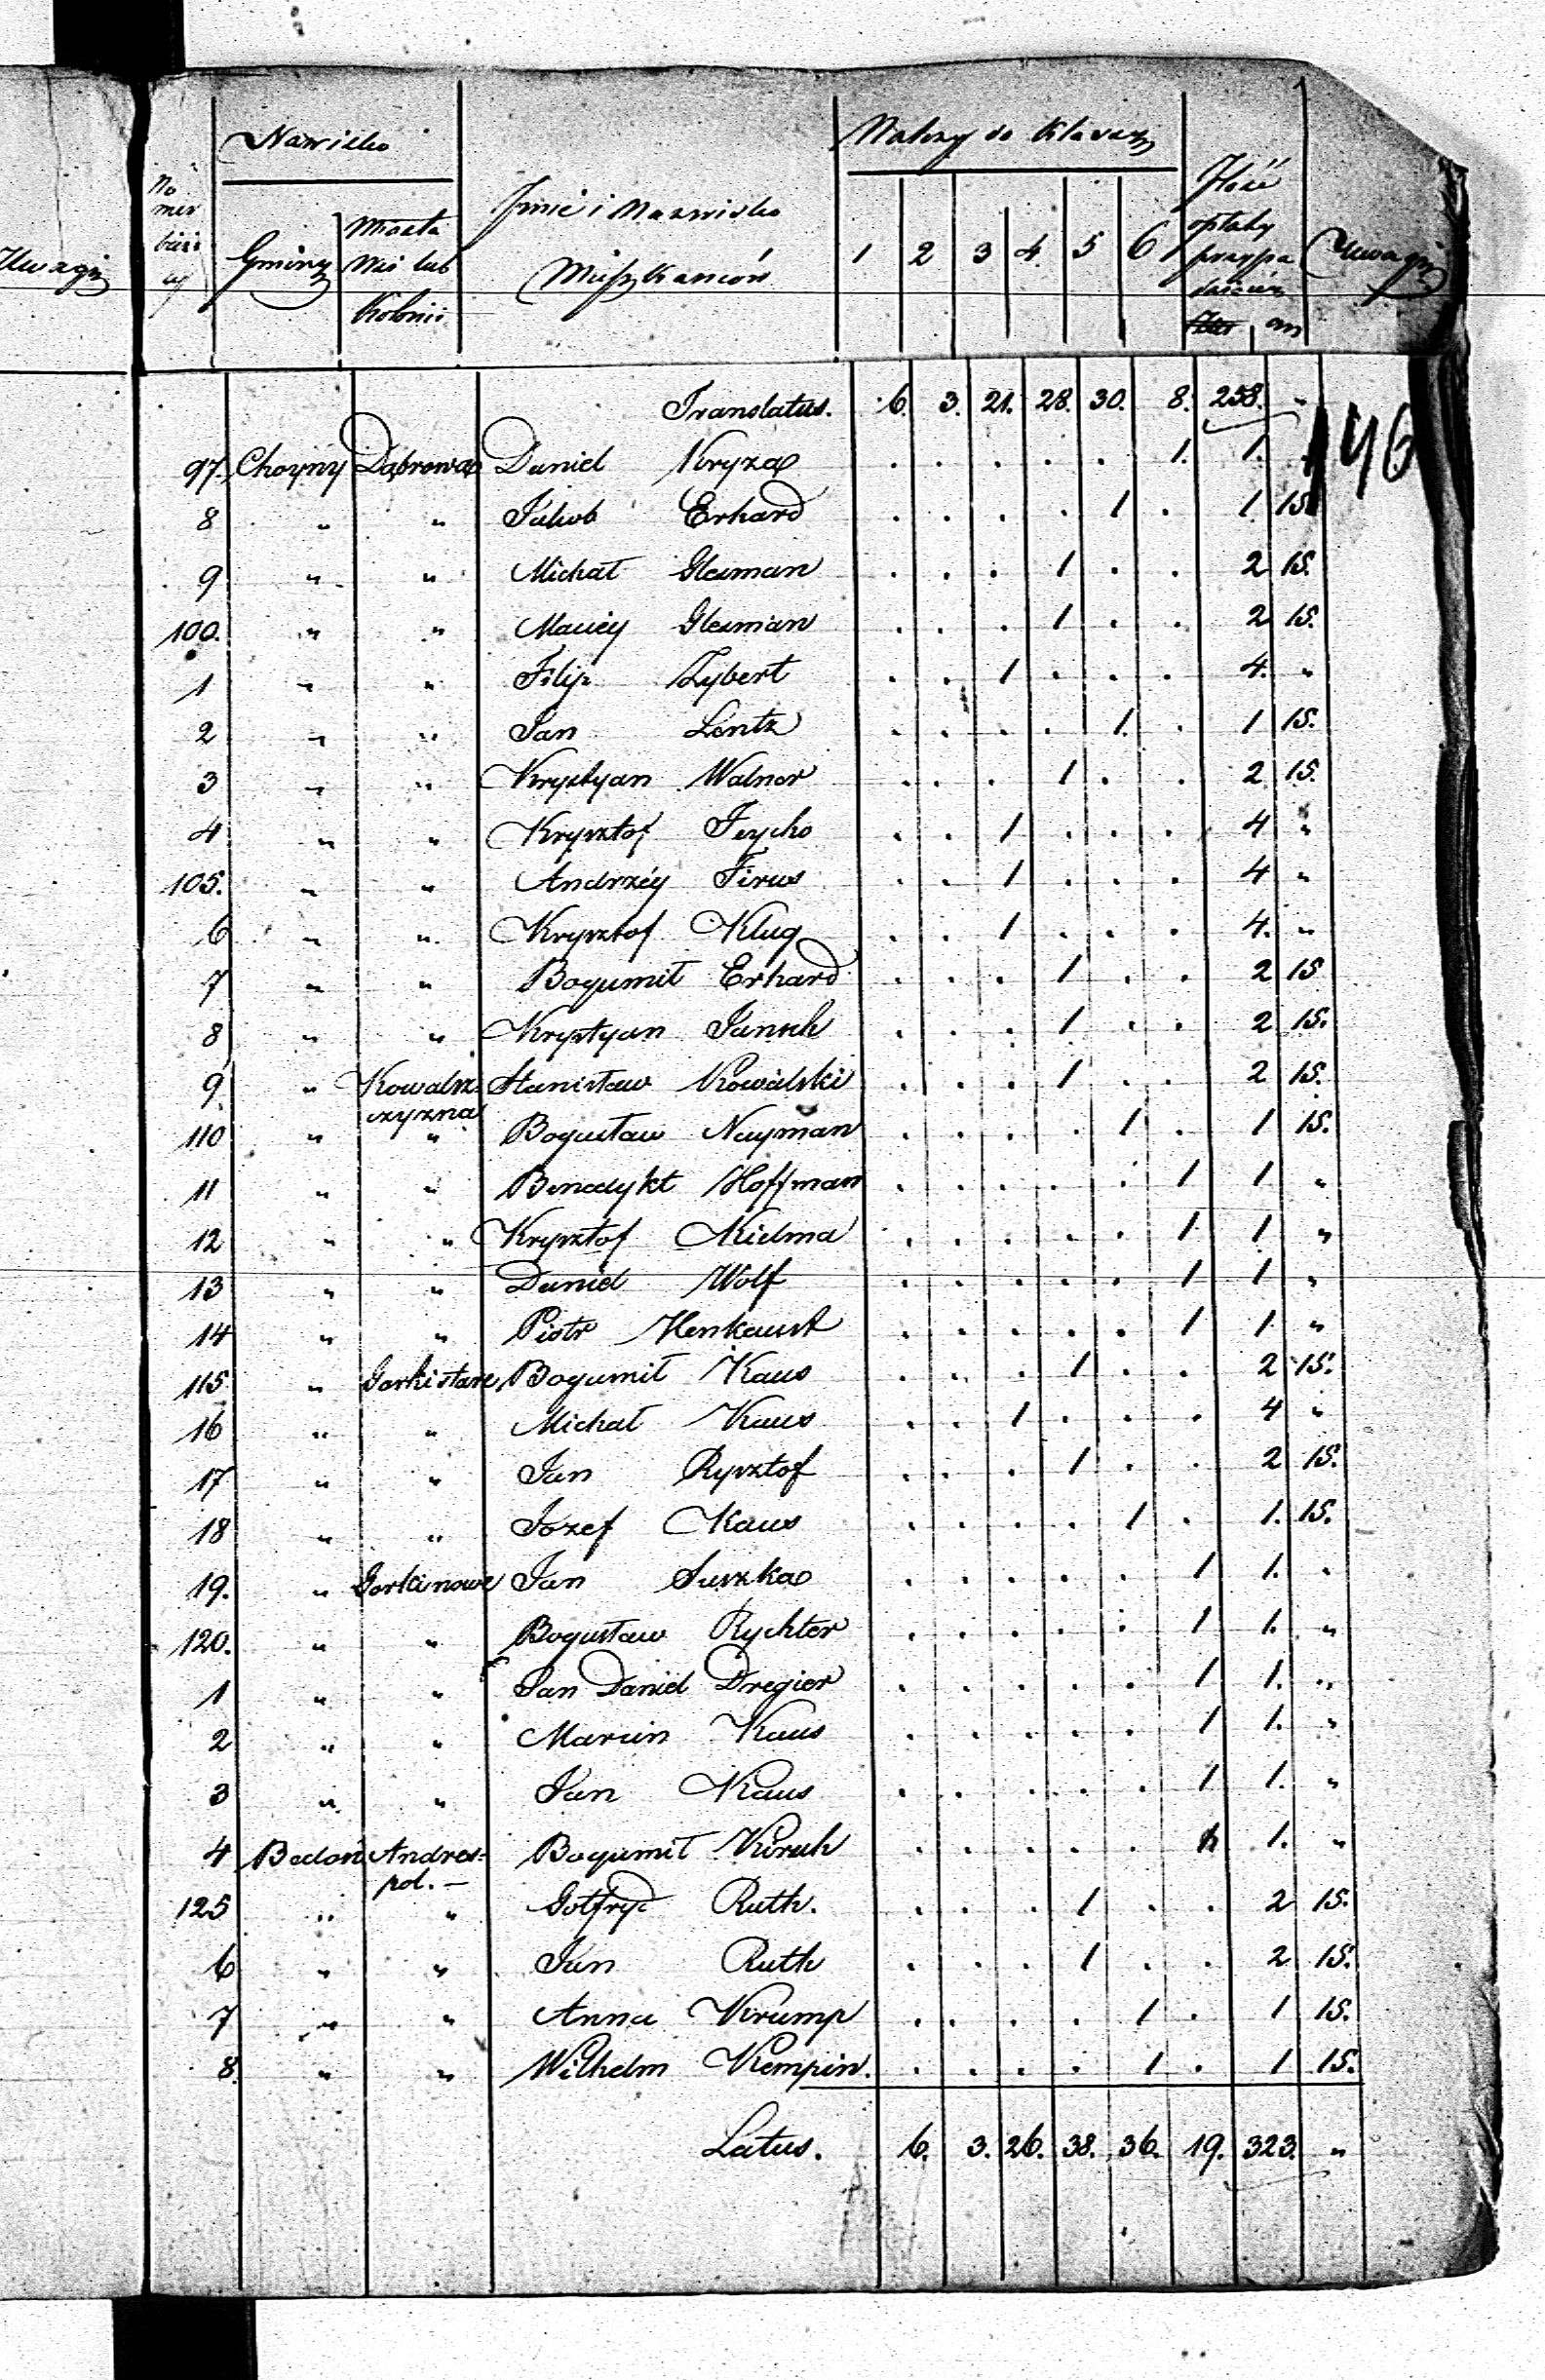 Uwagi
No mer bieżący
Nazwisko
Gminy
Miasta Wsi lub Kolonii
Imie i Nazwisko Mieszkanców
Należy do Klassy
1 2 3 4 5 6
Ilość opłaty przypa
Uwagi
146
Translatus. 6. 3. 21. 28. 30. 8. 258. "
97. Choyny Dąbrowa Daniel Kryza . . . . . 1. 1.
8 " " Jakob Erhard . . . . 1 . 1 15
9 " " Michał Glesman . . . 1 . . 2 15.
100. " " Maciey Glesman . . . 1 . . 2 15.
1 " " Filip Zybert . . 1 . . . 4. "
2 " " Jan Lentz . . . . 1. . 1 15.
3 " " Krystyan Walner . . . 1 . . 2 15.
4 " " Krysztof Feycho . . 1 . . . 4 "
105. " " Andrzéy Firus . . 1 . . . 4 "
6 " " Krysztof Klug . . 1 . . . 4. "
7 " " Bogumił Erhard . . . 1 . . 2 15
8 " " Krystyan Jansch . . . 1 . . 2 15.
9. " Kowalsz- Stanisław Kowalski . . . 1 . . 2 15.
czyzna
110 " " Bogusław Nayman . . . . 1 . 1 15.
11 " " Benedykt Hoffman . . . . . 1 1 "
12 " " Krysztof Kielma . . . . . 1 1 "
13 " " Daniel Wolf . . . . . 1 1 "
14 " " Piotr Henkaust . . . . . 1 1 "
115. " Gorki stare Bogumił Kaus . . . 1 . . 2 15.
16 " " Michał Kaus . . 1 . . . 4 "
17 " " Jan Rysztof . . . 1 . . 2 15.
18 " " Jozef Kaus . . . . 1 . 1. 15.
19. " Gorki nowe Jan Suszka . . . . . 1 1. "
120. " " Bogusław Rychter . . . . . 1 1. "
1 " " Jan Daniel Dregier . . . . . 1 1. "
2 " " Marcin Kaus . . . . . 1 1. "
3 " " Jan Kaus . . . . . 1 1. "
4 Bedoń Andres= Bogumił Kirsch . . . . . 1 1. "
pol. —
125 " " Gotfryd Ruth. . . . 1 . . 2 15.
6 " " Jan Ruth . . . 1 . . 2 15.
7 " " Anna Krump . . . . 1 . 1 15.
8. " " Wilhelm Kempin. . . . . 1 . 1 15.
Latus. 6. 3. 26. 38. 36. 19. 323. "